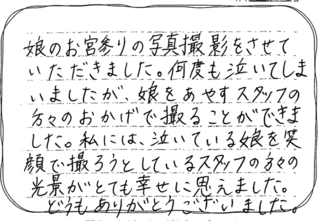 娘のお宮参りの写真撮影をさせて
いただきました。何度も泣いてしま
いましたが、娘をあやすスタッフの
方々のおかげで撮ることができま
した。私には、泣いている娘を笑
顔で撮ろうとしているスタッフの方々の
光景がとても幸せに思えました。
どうもありがとうございました。